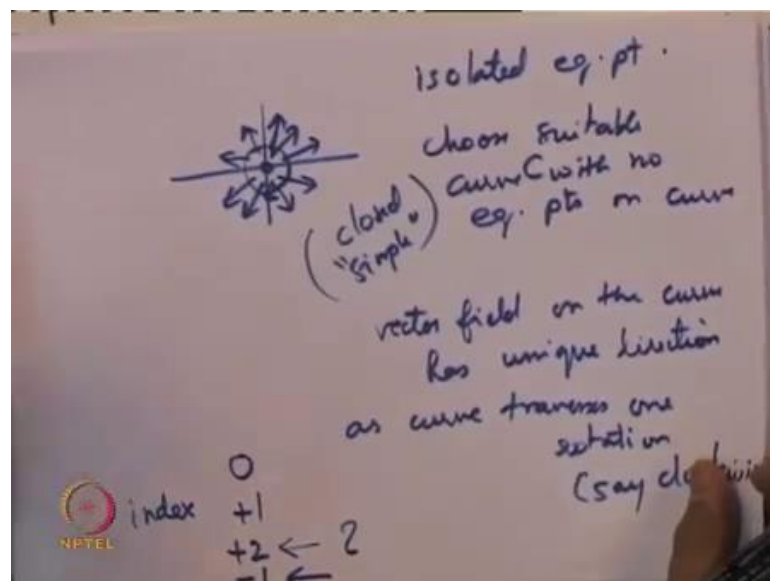 isolated eq. pt.
choose suitable
curve C with no
eq. pts on curve
(closed
"simple")
vector field on the curve
has unique direction
as curve traverses one
rotation
(say
0
index +1
+2 ← 2
-1 ←
NPTEL